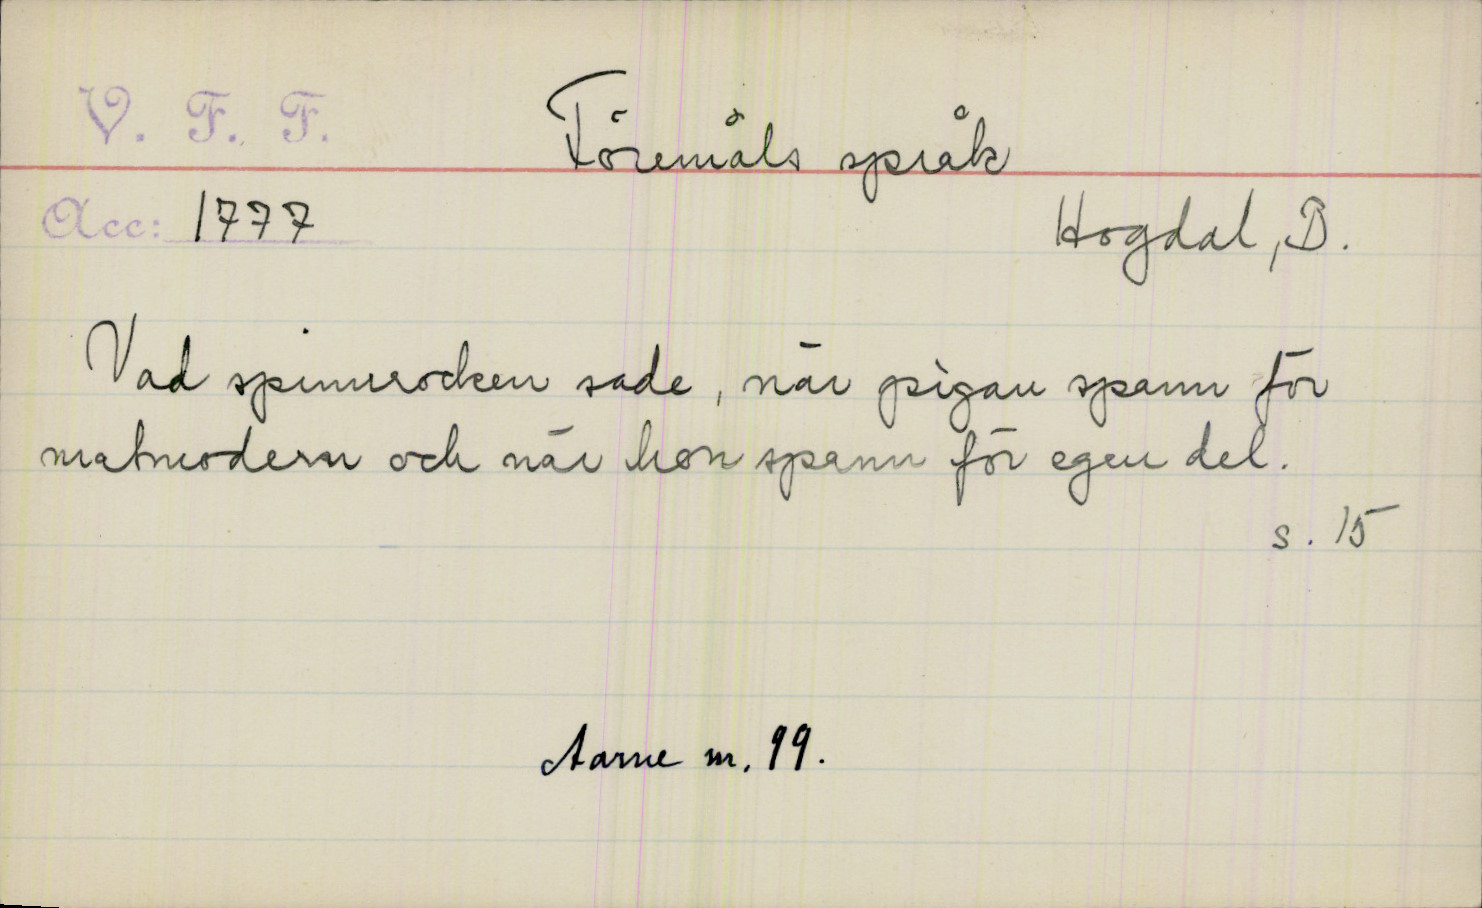 V. F. F.
Föremåls språk
Acc: 1777
Hogdal, B.
Vad spinnrocken sade, när pigan spann för
matmodern och när hon spann för egen del.
s. 15
Aarne nr. 99.